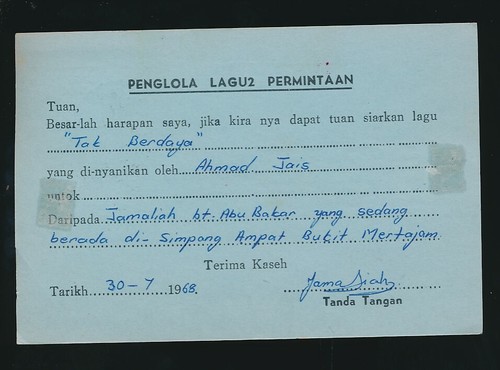 PENGLOLA LAGU2 PERMINTAAN
Tuan,
Besar-lah harapan saya, jika kira nya dapat tuan siarkan lagu
"Tak Berdaya"
yang di-nyanikan oleh Ahmad Jais
untok
Daripada Jamaliah bt. Abu Bakar yang sedang
berada di- Simpang Ampat Bukit Mertajam.
Terima Kaseh
Tarikh 30-7 1968.
Jamaliah
Tanda Tangan